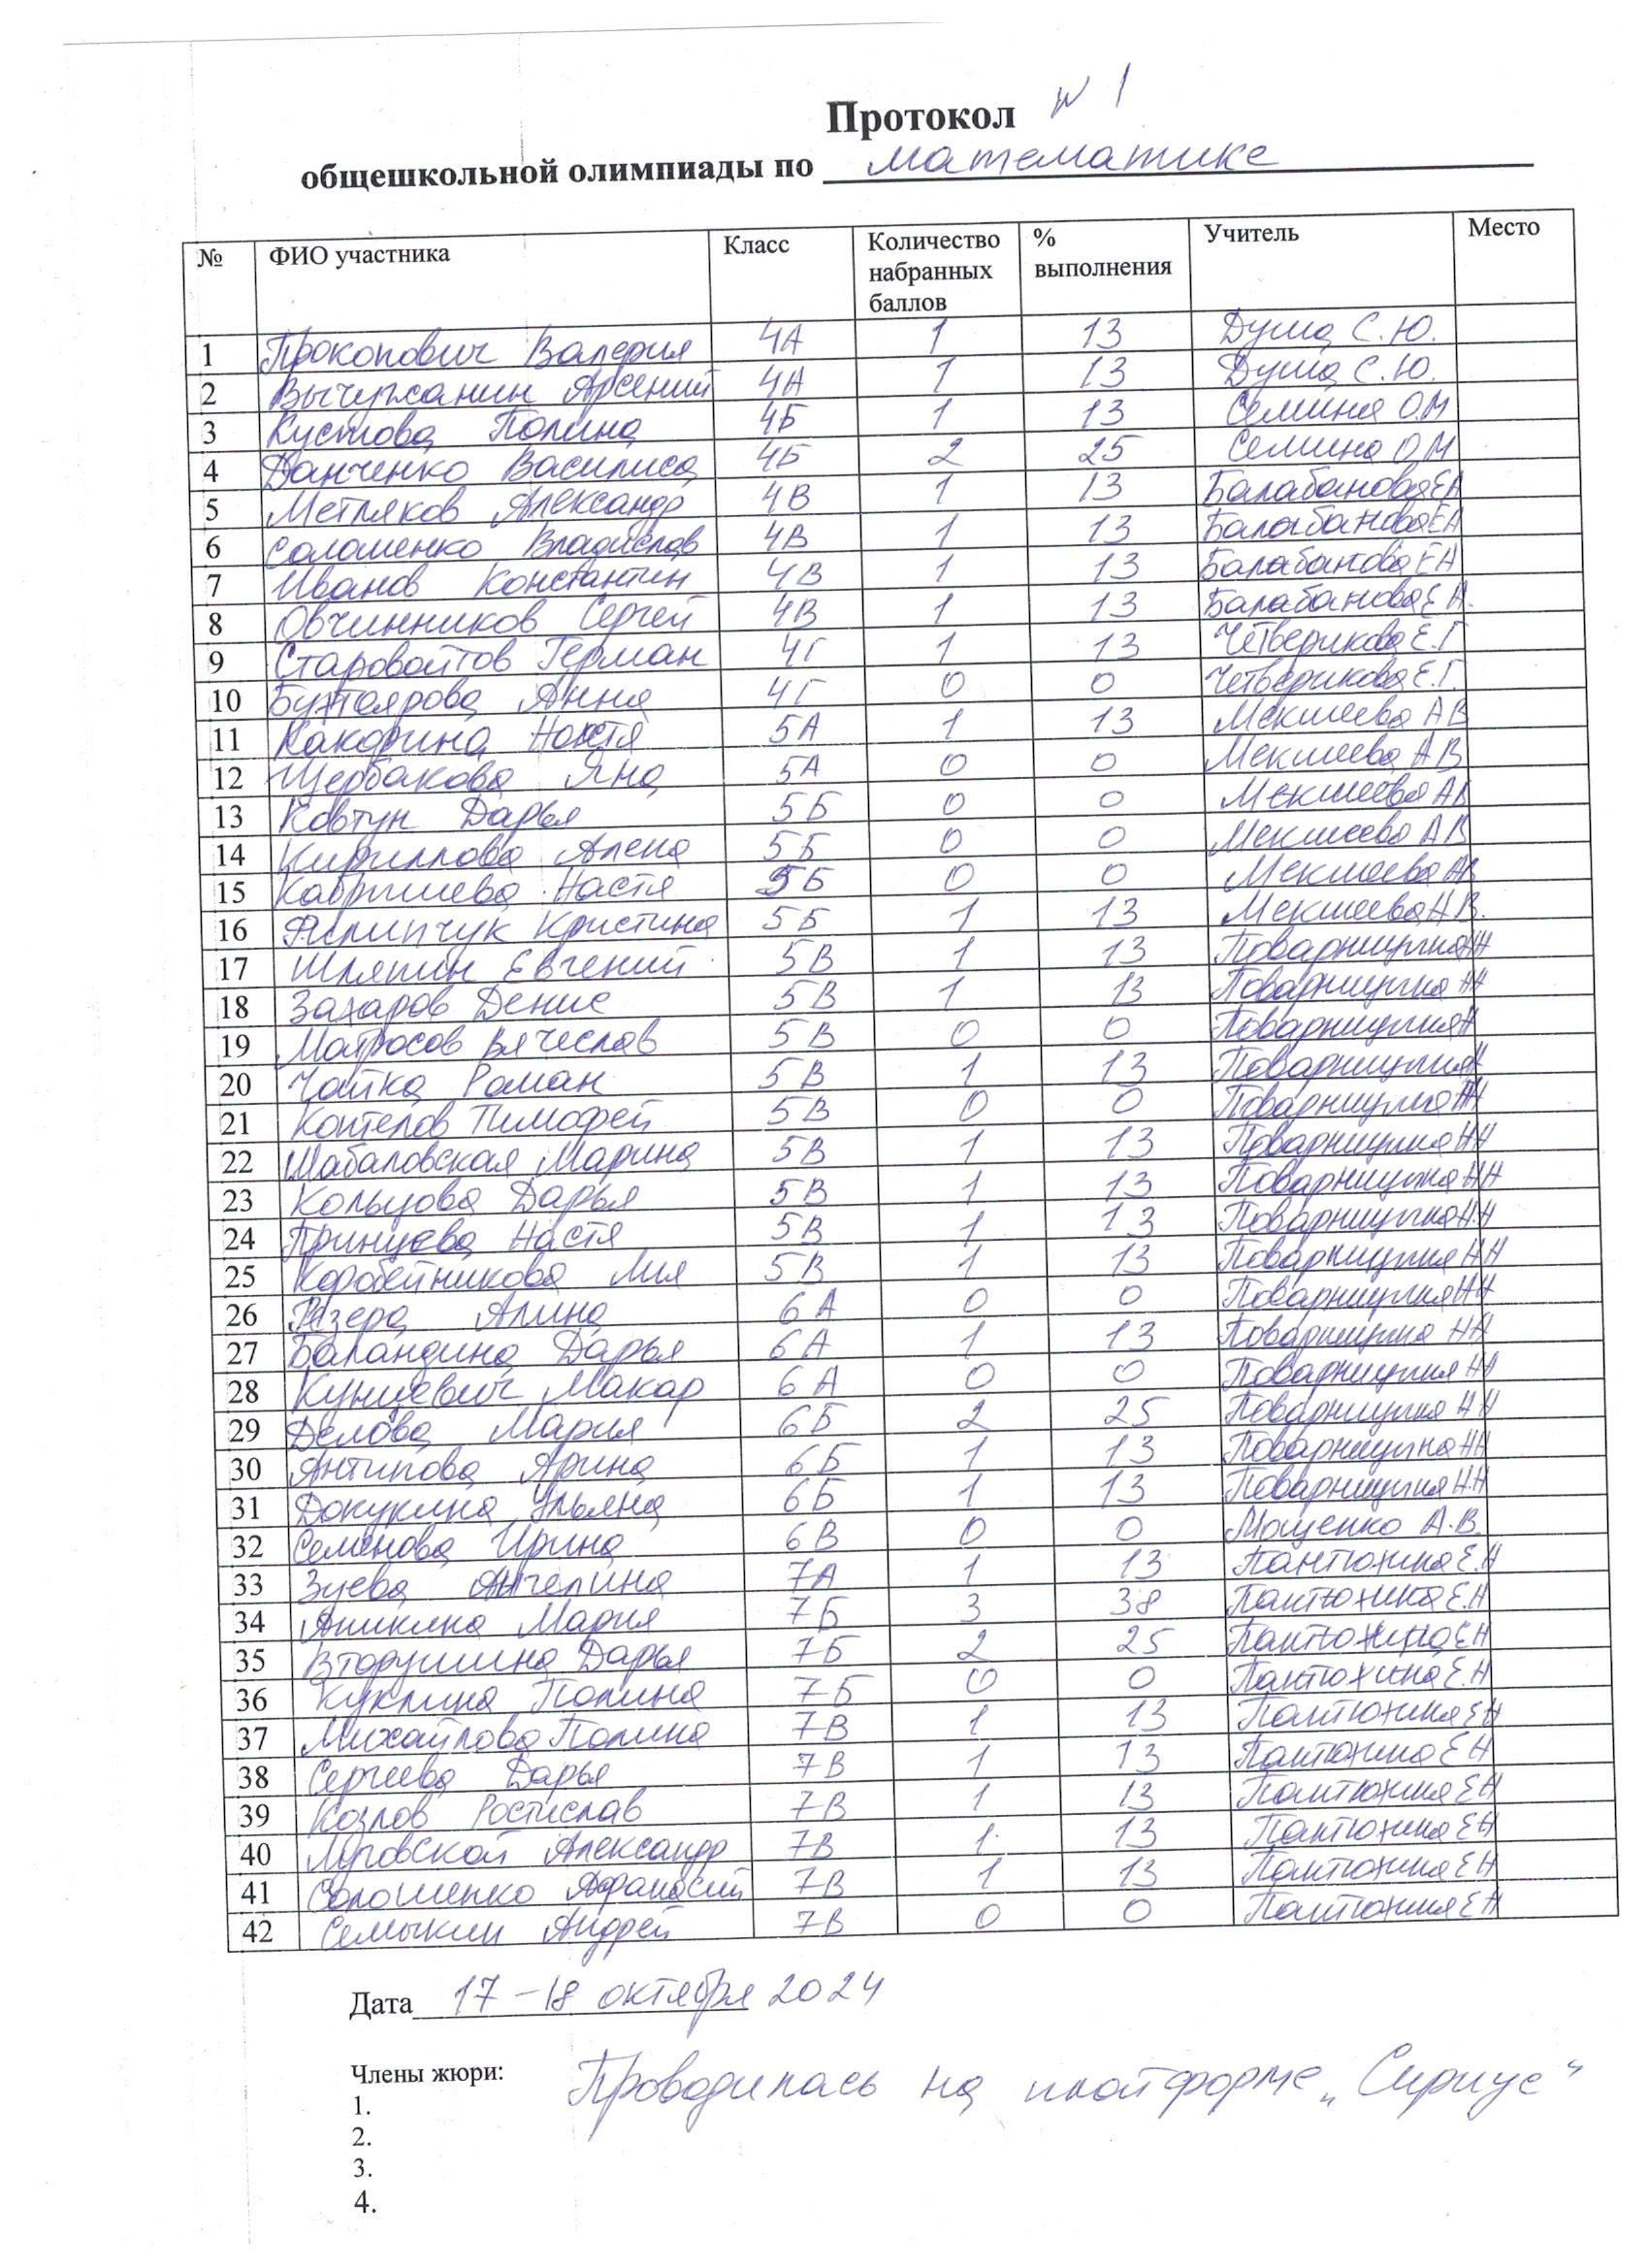 Протокол № 1
общешкольной олимпиады по математике
№ ФИО участника Класс Количество набранных баллов % выполнения Учитель Место
1 Прокопович Валерия 4А 1 13 Душа С.Ю.
2 Вычужанин Арсений 4А 1 13 Душа С.Ю.
3 Кустова Полина 4Б 1 13 Семина О.М
4 Данченко Василиса 4Б 2 25 Семина О.М
5 Метляков Александр 4В 1 13 Балабанова ЕА
6 Соломенко Владислав 4В 1 13 Балабанова ЕА
7 Иванов Константин 4В 1 13 Балабанова ЕА
8 Овчинников Сергей 4В 1 13 Балабанова Е А.
9 Старовойтов Герман 4Г 1 13 Четверикова Е.Г
10 Анна 4Г 0 0 Четверикова Е.Г.
11 Какорина Настя 5А 1 13 Мекшеева А В
12 Щербакова Яна 5А 0 0 Мекшеева А В
13 Ковтун Дарья 5Б 0 0 Мекшеева АВ
14 Кириллова Алена 5Б 0 0 Мекшеева А В
15 Настя 5Б 0 0 Мекшеева АВ
16 Филипчук Кристина 5Б 1 13 Мекшеева А В.
17 Шляпин Евгений 5В 1 13 Поварницына НН
18 Захаров Денис 5В 1 13 Поварницына НН
19 Матросов Вячеслав 5В 0 0 Поварницына Н
20 Чайка Роман 5В 1 13 Поварницына Н
21 Коптелов Тимофей 5В 0 0 Поварницына НН
22 Шабаловская Марина 5В 1 13 Поварницына НН
23 Кольцова Дарья 5В 1 13 Поварницына НН
24 Принцева Настя 5В 1 13 Поварницына Н.Н
25 Коробейникова Лия 5В 1 13 Поварницына НН
26 Алина 6А 0 0 Поварницына НН
27 Баландина Дарья 6А 1 13 Поварницына НН
28 Кунцевич Макар 6А 0 0 Поварницына НН
29 Делова Мария 6Б 2 25 Поварницына НН
30 Антипова Арина 6Б 1 13 Поварницына НН
31 Докукина Ульяна 6Б 1 13 Поварницына Н.Н
32 Семенова Ирина 6В 0 0 Мощенко А.В.
33 Зуева Ангелина 7А 1 13 Пантюхина Е.Н
34 Аникина Мария 7Б 3 38 Пантюхина Е.Н
35 Вторушина Дарья 7Б 2 25 Пантюхина ЕН
36 Куклина Полина 7Б 0 0 Пантюхина Е.Н
37 Михайлова Полина 7В 1 13 Пантюхина ЕН
38 Сергеева Дарья 7В 1 13 Пантюхина Е Н
39 Козлов Ростислав 7В 1 13 Пантюхина ЕН
40 Луговской Александр 7В 1 13 Пантюхина ЕН
41 Соломенко Афанасий 7В 1 13 Пантюхина ЕН
42 Семыкин Андрей 7В 0 0 Пантюхина ЕН
Дата 17–18 октября 2024
Члены жюри: Проводилась на платформе „Сириус“
1.
2.
3.
4.